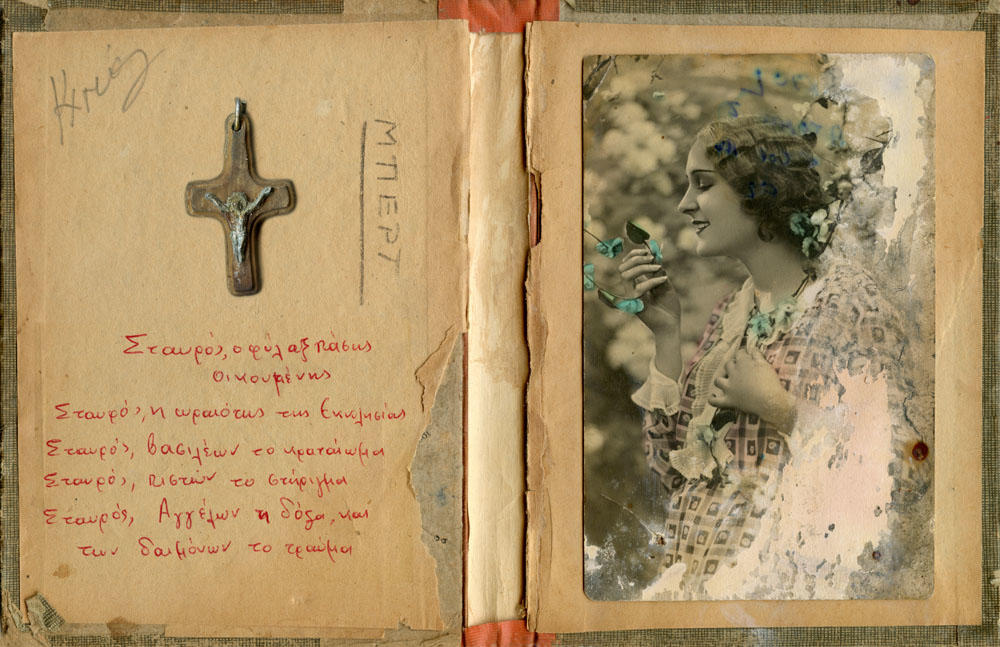 ΜΠΕΡΤ
Σταυρός, ο φύλαξ πάσης
οικουμένης
Σταυρός, η ωραιότης της Εκκλησίας
Σταυρός, βασιλέων το κραταίωμα
Σταυρός, πιστών το στήριγμα
Σταυρός, Αγγέλων η δόξα, και
των δαιμόνων το τραύμα